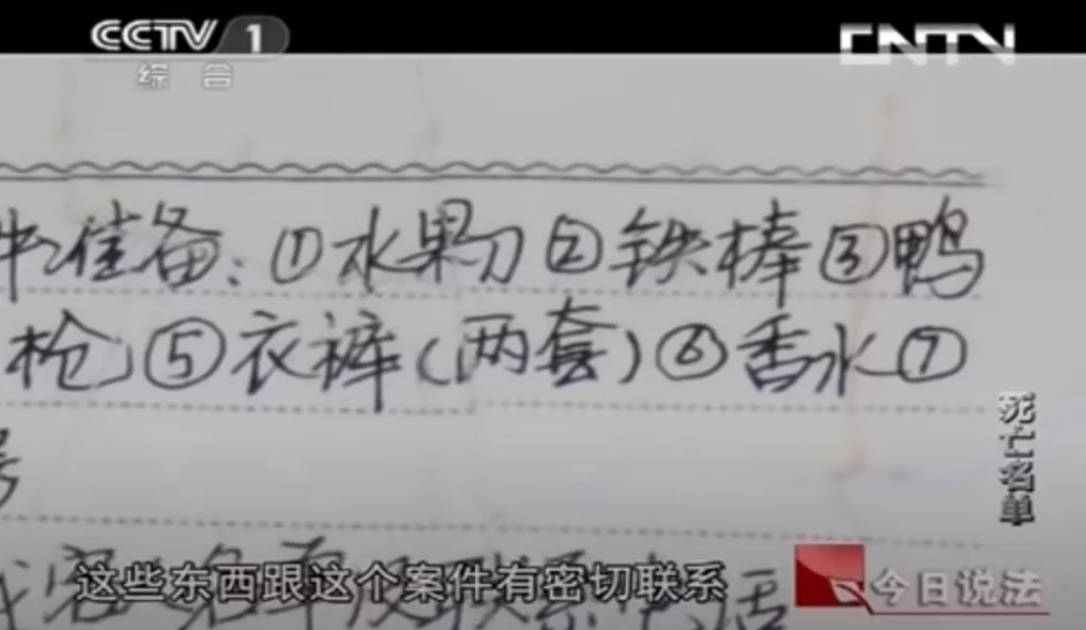 CCTV 1
CNTV
综合
准备：①水果刀②铁棒③鸭
枪⑤衣裤（两套）⑥香水⑦
死亡名单
名单及联系电话
这些东西跟这个案件有密切联系
今日说法